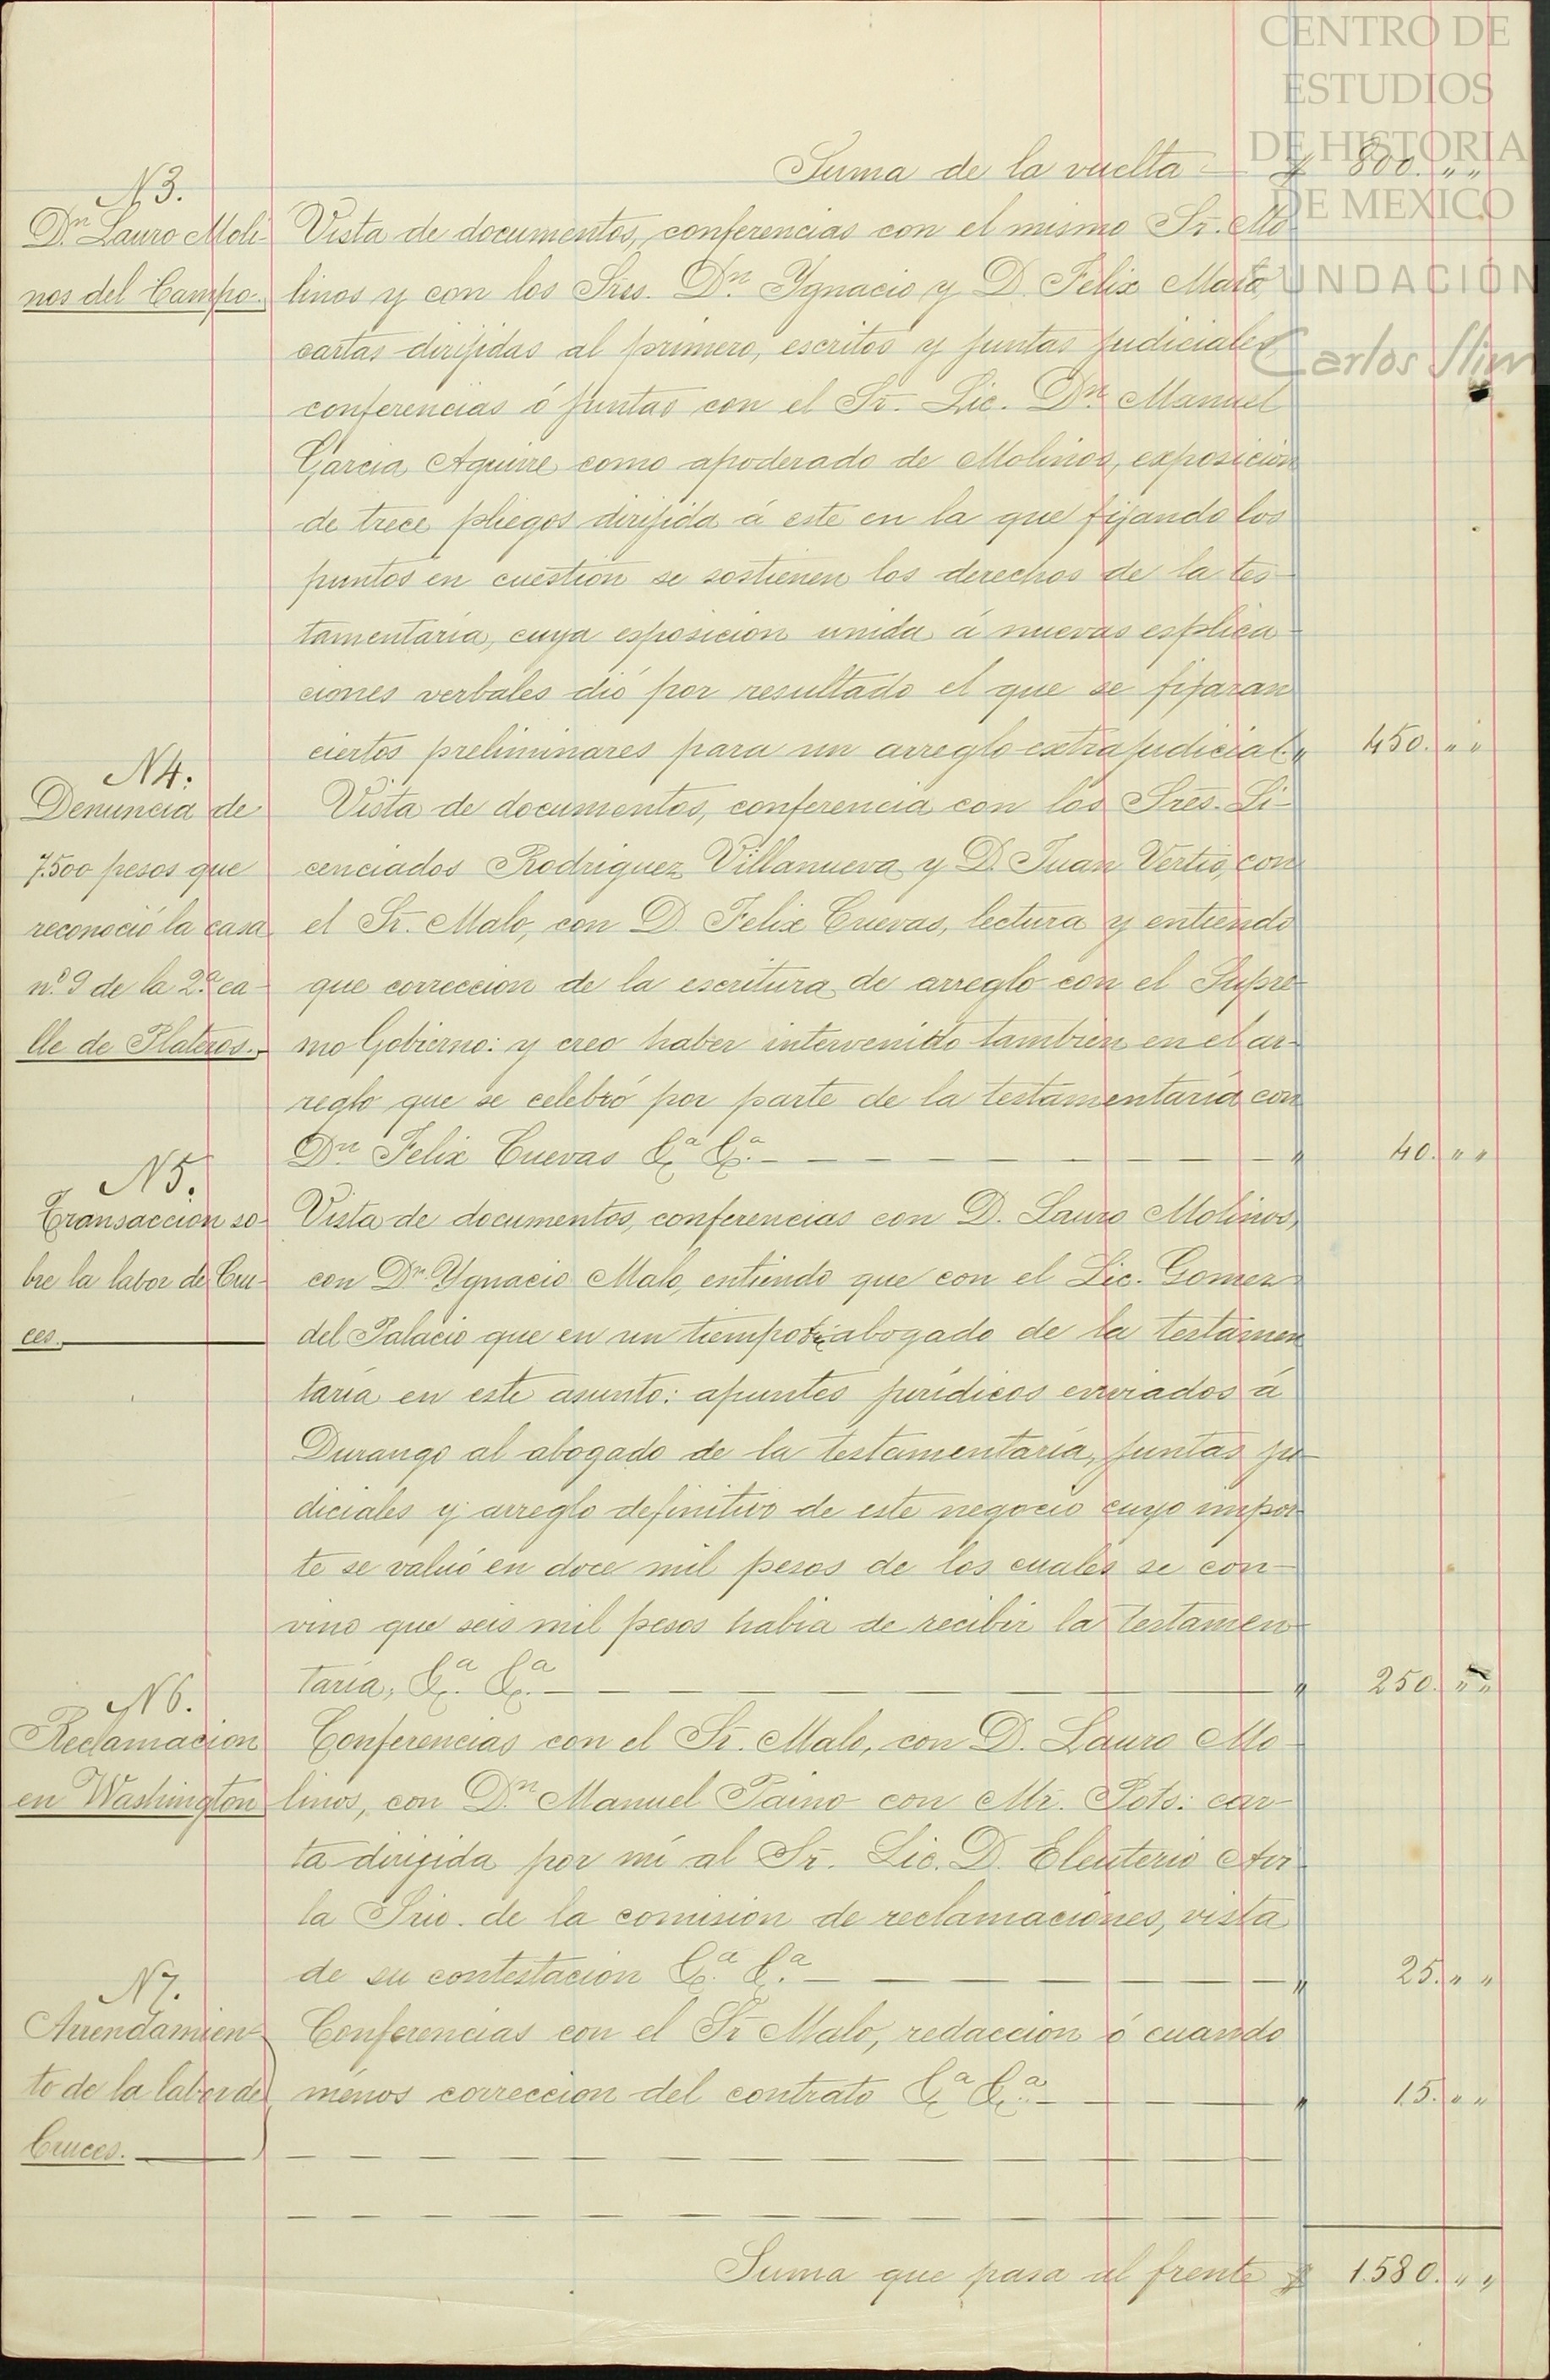 CENTRO DE
ESTUDIOS
DE HISTORIA
DE MEXICO
FUNDACIÓN
Carlos Slim
Suma de la vuelta — $ 800. „ „
N3.
Dn. Lauro Moli-
nos del Campo.
Vista de documentos, conferencias con el mismo Sr. Mo-
linos y con los Sres. Dn. Ygnacio y D. Felix Malo,
cartas dirijidas al primero, escritos y juntas judiciales
conferencias ó juntas con el Sr. Lic. Dn. Manuel
Garcia Aguirre como apoderado de Molinos, exposicion
de trece pliegos dirijida á este en la que fijando los
puntos en cuestion se sostienen los derechos de la tes-
tamentaría, cuya esposicion unida á nuevas esplica-
ciones verbales dió por resultado el que se fijaran
ciertos preliminares para un arreglo extrajudicial. „ 450. „ „
N4.
Denuncia de
7.500 pesos que
reconoció la casa
n.º 9 de la 2.ª ca-
lle de Plateros.
Vista de documentos, conferencia con los Sres. Li-
cenciados Rodriguez Villanueva y D. Juan Vertis, con
el Sr. Malo, con D. Felix Cuevas, lectura y entiendo
que correccion de la escritura de arreglo con el Supre-
mo Gobierno: y creo haber intervenido tambien en el ar-
reglo que se celebró por parte de la testamentaría con
Dn. Felix Cuevas &.ª &.ª — — — — — „ 40. „ „
N5.
Transaccion so-
bre la labor de Cru-
ces.
Vista de documentos, conferencias con D. Lauro Molinos,
con Dn. Ygnacio Malo, entiendo que con el Lic. Gomez
del Palacio que en un tiempo abogado de la testamen
taría en este asunto: apuntes jurídicos enviados á
Durango al abogado de la testamentaría, juntas ju-
diciales y arreglo definitivo de este negocio cuyo impor-
te se valuó en doce mil pesos de los cuales se con-
vino que seis mil pesos habia de recibir la testamen-
taría, &.ª &.ª — — — — — „ 250. „ „
N6.
Reclamacion
en Washington
Conferencias con el Sr. Malo, con D. Lauro Mo-
linos, con Dn. Manuel Paino con Mr. Pots: car-
ta dirijida por mí al Sr. Lic. D. Eleuterio Avi-
la Srio. de la comision de reclamaciones, vista
de su contestacion &.ª &.ª — — — — — „ 25. „ „
N7.
Arrendamien-
to de la labor de
Cruces.
Conferencias con el Sr Malo, redaccion ó cuando
ménos correccion del contrato &.ª &.ª — — — „ 15. „ „
Suma que pasa al frente $ 1.580. „ „